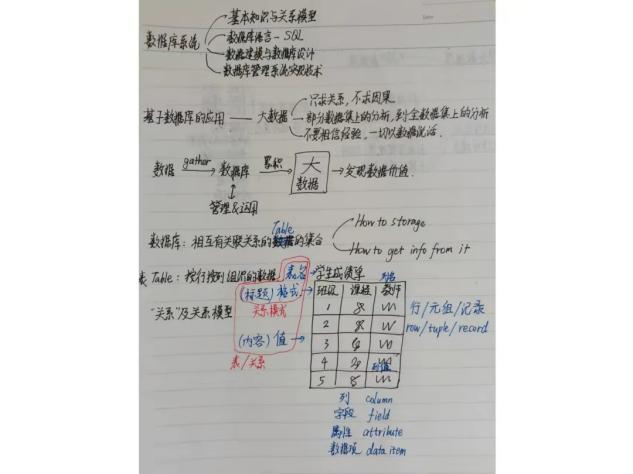 基本知识与关系模型
数据库系统
数据库语言－SQL
数据建模与数据库设计
数据库管理系统实现技术
只求关系，不求因果
基于数据库的应用 —— 大数据
部分数据集上的分析，到全数据集上的分析
不要相信经验，一切以数据说话．
数据 gather 数据库 累积 大数据 发现数据价值．
管理&运用
Table
数据库：相互有关联关系的数据的集合
How to storage
How to get info from it
表 Table：按行按列组织的数据 表名 学生成绩单
列名
(标题) 格式 班级 课程 教师
关系模式
"关系"及关系模型
1
2
3
4
5
行/元组/记录
row/tuple/record
(内容) 值
列值
表/关系
列 column
字段 field
属性 attribute
数据项 data item